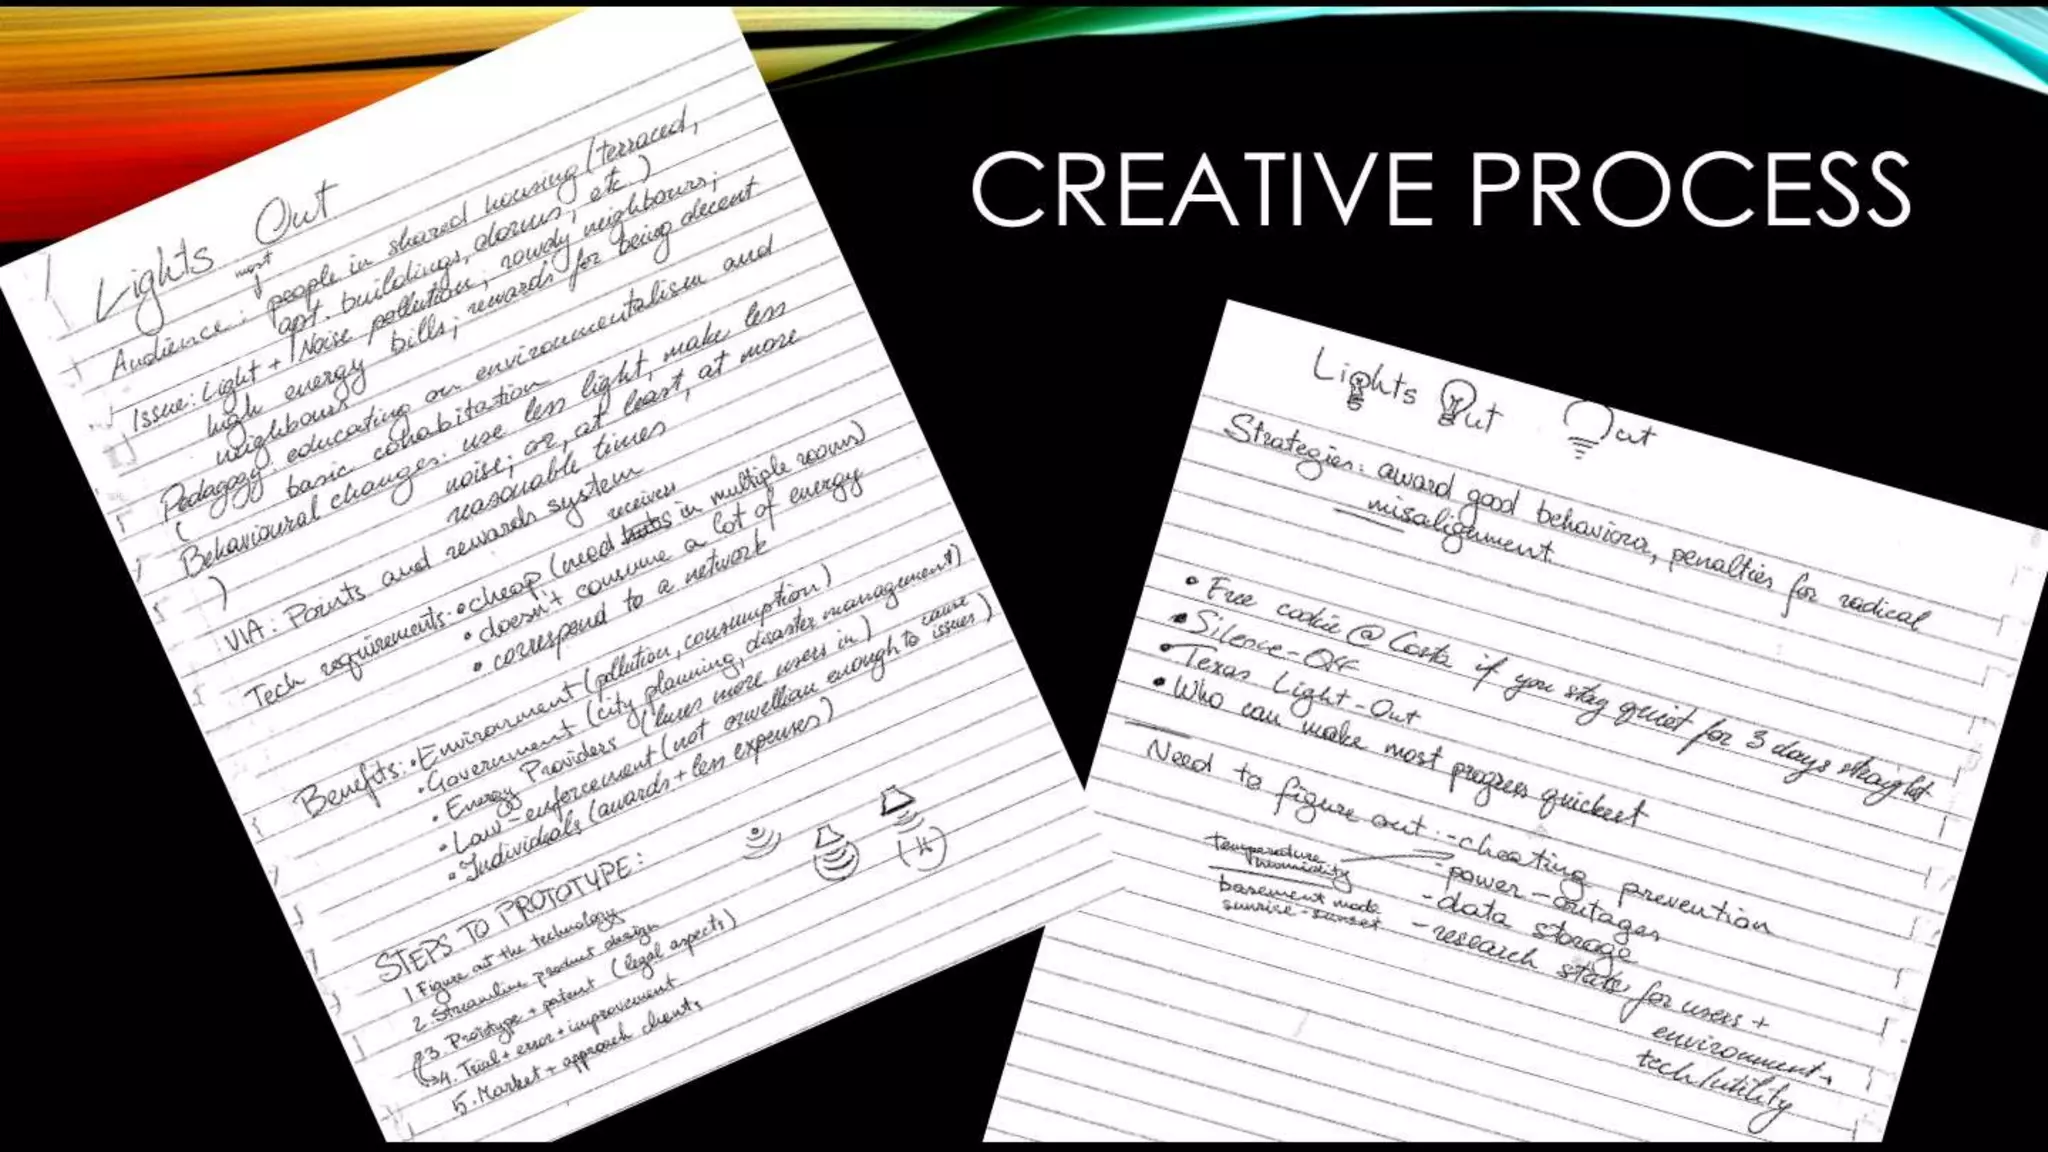 CREATIVE PROCESS
Lights Out
most
Audience: people in shared housing (terraced,
apt. buildings, dorms, etc.)
Issue: Light + Noise pollution; rowdy neighbours;
high energy bills; rewards for being decent
neighbours
Pedagogy: educating on environmentalism and
basic cohabitation
Behavioural changes: use less light, make less
noise; or, at least, at more
reasonable times
VIA: Points and rewards system
receivers
Tech requirements: • cheap (need in multiple rooms)
• doesn't consume a lot of energy
• correspond to a network
Benefits: • Environment (pollution, consumption)
• Government (city planning, disaster management)
• Energy Providers (lures more users in)
• Law-enforcement (not orwellian enough to cause
issues)
• Individuals (awards + less expenses)
STEPS TO PROTOTYPE:
1 Figure out the technology
2. Streamline product design
3. Prototype + patent (legal aspects)
4. Trial + error + improvement
5. Market + approach clients
Lights Out Out
Strategies: award good behaviora, penalties for radical
misalignment.
• Free cookie @ Costa if you stay quiet for 3 days straight
• Silence-Off
• Texas Light-Out
• Who can make most progress quickest
Need to figure out: - cheating prevention
- power-outages
- data storage
- research stats for users +
environment +
tech/utility
temperature
humidity
basement mode
sunrise - sunset